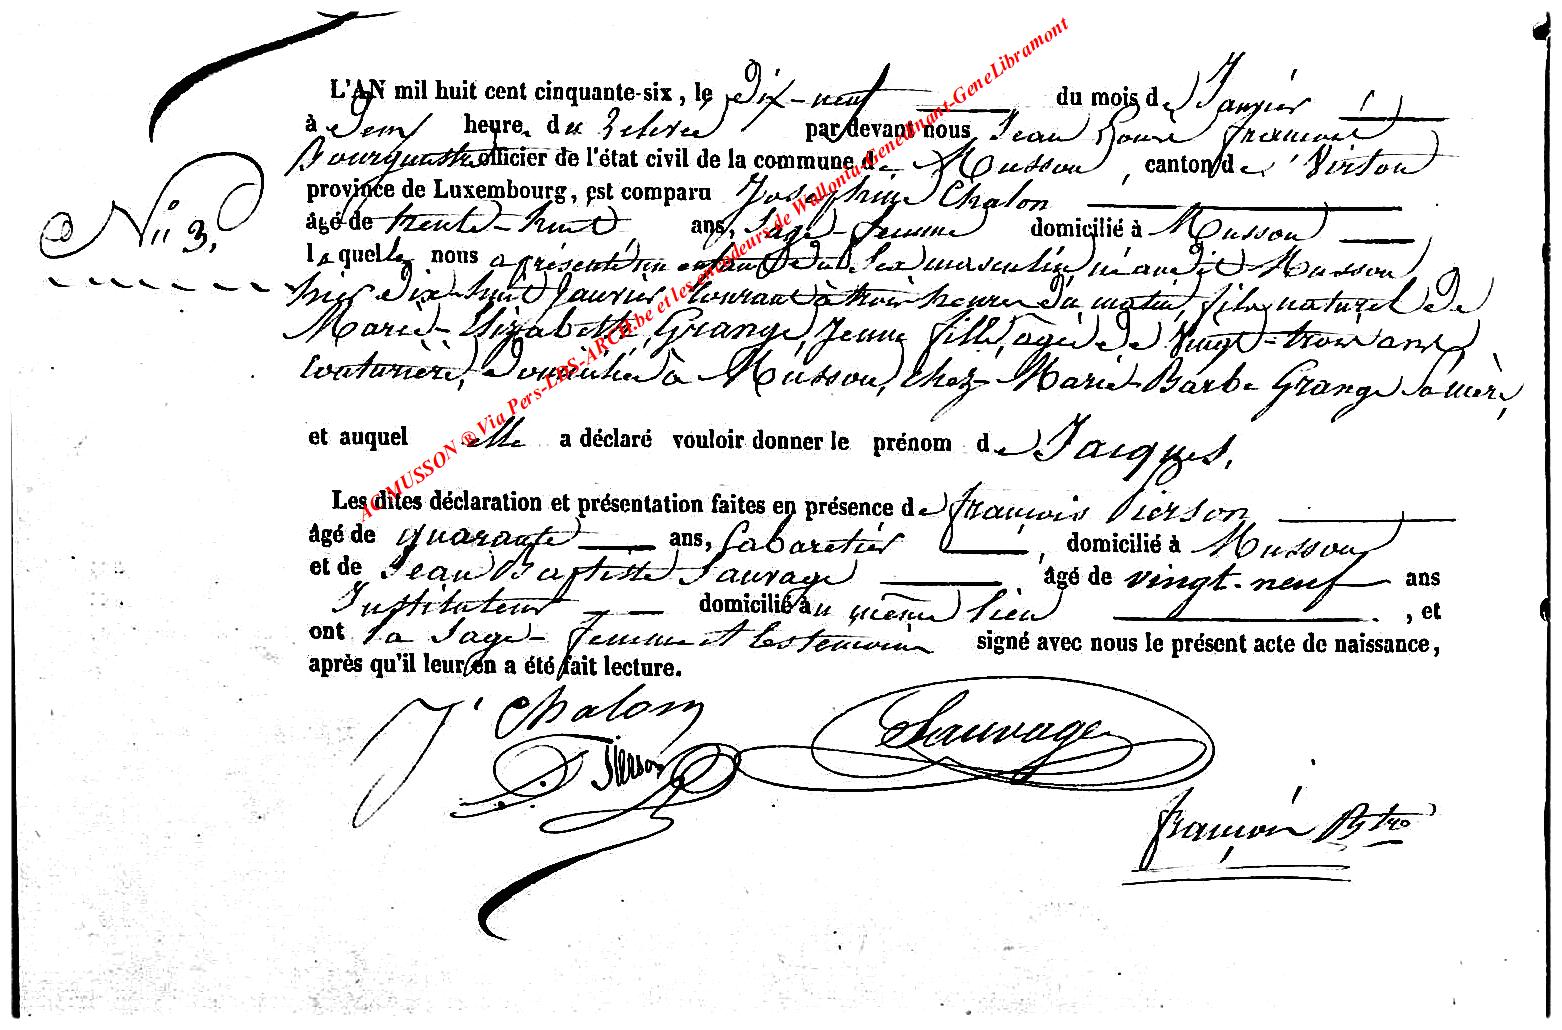 L'AN mil huit cent cinquante-six, le Dix-neuf du mois de Janvier
à Deux heure du relevée par devant nous Jean Louis François
Bourgmestre officier de l'état civil de la commune de Musson, canton de Virton
province de Luxembourg, est comparu Josephine Chalon
N° 3.
âgé de trente-huit ans, Sage-femme domicilié à Musson
laquelle nous a présenté un enfant du Sex masculin, né audit Musson
hier Dix-huit Janvier Courant à trois heures du matin, fils naturel de
Marie-Elizabeth Grange, Jeune fille, agée de Vingt-trois ans
Couturière, Domiciliée à Musson, chez Marie-Barbe Grange Sa mère,
et auquel elle a déclaré vouloir donner le prénom de Jacques.
Les dites déclaration et présentation faites en présence de françois Pierson
âgé de quarante ans, Cabaretier, domicilié à Musson
et de Jean Baptiste Sauvage âgé de vingt-neuf ans
Instituteur domicilié au même lieu, et
ont la Sage-femme et les temoins signé avec nous le présent acte de naissance,
après qu'il leur en a été fait lecture.
J Chalon
Sauvage
Pierson
françois
AC MUSSON ® Via Pers-LDS-ARCH.be et les encodeurs de Wallonia-Genedinant-GeneLibramont